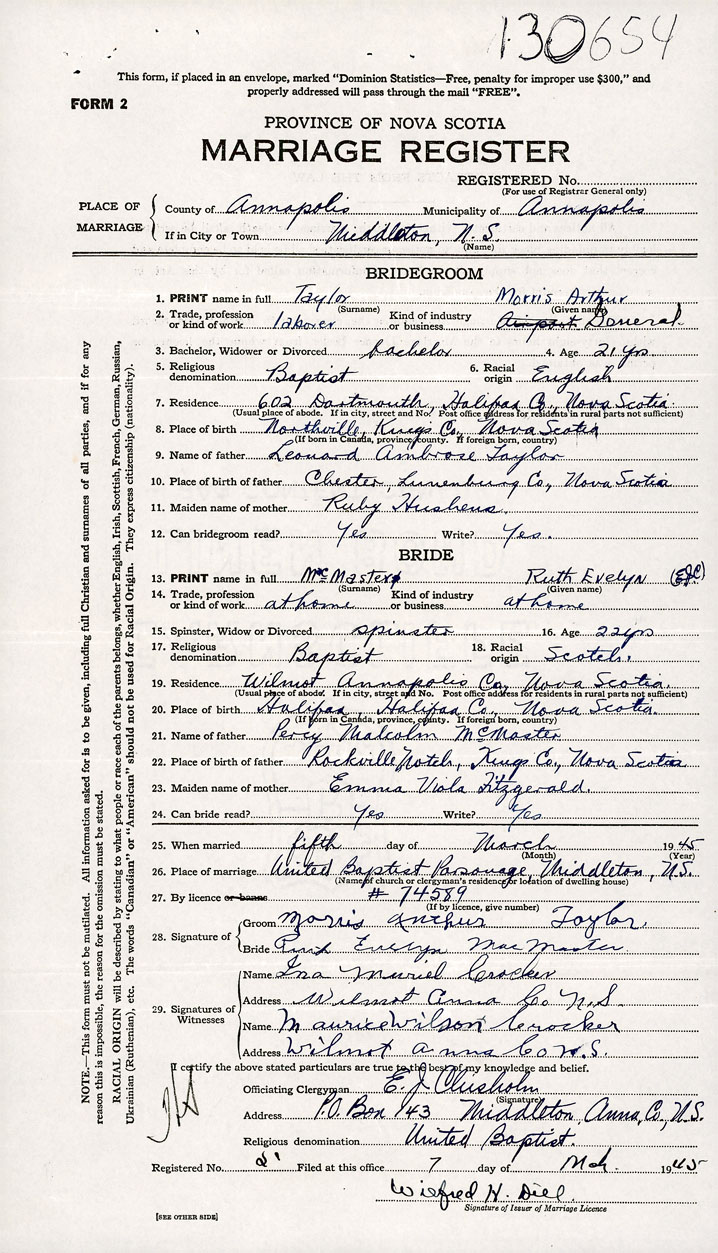 130654
This form, if placed in an envelope, marked "Dominion Statistics—Free, penalty for improper use $300," and
properly addressed will pass through the mail "FREE".
FORM 2
PROVINCE OF NOVA SCOTIA
MARRIAGE REGISTER
REGISTERED No.
(For use of Registrar General only)
PLACE OF MARRIAGE
County of Annapolis Municipality of Annapolis
If in City or Town Middleton, N.S.
(Name)
BRIDEGROOM
1. PRINT name in full Taylor Morris Arthur
(Surname) (Given name)
2. Trade, profession or kind of work laborer Kind of industry or business Airport General
3. Bachelor, Widower or Divorced bachelor 4. Age 21 yrs
5. Religious denomination Baptist 6. Racial origin English
7. Residence 602 Dartmouth, Halifax Co., Nova Scotia
(Usual place of abode. If in city, street and No. Post office address for residents in rural parts not sufficient)
8. Place of birth Northville, Kings Co., Nova Scotia
(If born in Canada, province, county. If foreign born, country)
9. Name of father Leonard Ambrose Taylor
10. Place of birth of father Chester, Lunenburg Co., Nova Scotia
11. Maiden name of mother Ruby
12. Can bridegroom read? Yes Write? Yes.
BRIDE
13. PRINT name in full McMaster Ruth Evelyn (EJC)
(Surname) (Given name)
14. Trade, profession or kind of work at home Kind of industry or business at home
15. Spinster, Widow or Divorced spinster 16. Age 22 yrs
17. Religious denomination Baptist 18. Racial origin Scotch.
19. Residence Wilmot Annapolis Co., Nova Scotia.
(Usual place of abode. If in city, street and No. Post office address for residents in rural parts not sufficient)
20. Place of birth Halifax, Halifax Co., Nova Scotia
(If born in Canada, province, county. If foreign born, country)
21. Name of father Percy Malcolm McMaster
22. Place of birth of father Rockville Notch, Kings Co., Nova Scotia
23. Maiden name of mother Emma Viola Fitzgerald.
24. Can bride read? Yes Write? Yes.
25. When married fifth day of March 1945
(Month) (Year)
26. Place of marriage United Baptist Parsonage, Middleton, N.S.
(Name of church or clergyman's residence, or location of dwelling house)
27. By licence or banns # 74589
(If by licence, give number)
28. Signature of
Groom Morris Arthur Taylor.
Bride Ruth Evelyn MacMaster
29. Signatures of Witnesses
Name Ina Muriel Crocker
Address Wilmot Anna Co N.S.
Name Maurice Wilson Crocker
Address Wilmot Anna Co N.S.
I certify the above stated particulars are true to the best of my knowledge and belief.
Officiating Clergyman E. J. Chisholm
(Signature)
Address P.O. Box 143 Middleton, Anna, Co., N.S.
Religious denomination United Baptist.
Registered No. Filed at this office 7 day of Mch. 1945
Wilfred H. Dill
Signature of Issuer of Marriage Licence
[SEE OTHER SIDE]
NOTE.—This form must not be mutilated. All information asked for is to be given, including full Christian and surnames of all parties, and if for any
reason this is impossible, the reason for the omission must be stated.
RACIAL ORIGIN will be described by stating to what people or race each of the parents belongs, whether English, Irish, Scottish, French, German, Russian,
Ukrainian (Ruthenian), etc. The words "Canadian" or "American" should not be used for Racial Origin. They express citizenship (nationality).